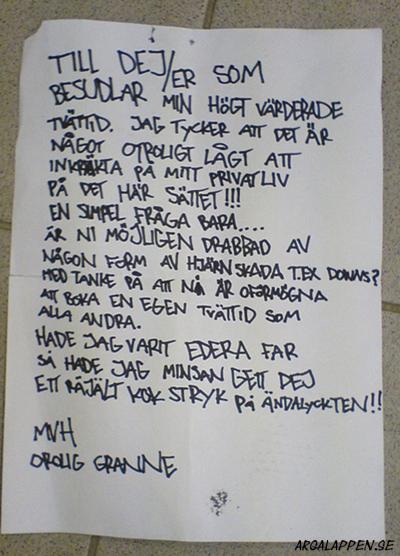 TILL DEJ/ER SOM
BESUDLAR MIN HÖGT VÄRDERADE
TVÄTTID. JAG TYCKER ATT DET ÄR
NÅGOT OTROLIGT LÅGT ATT
INKRÄKTA PÅ MITT PRIVATLIV
PÅ DET HÄR SÄTTET!!!
EN SIMPEL FRÅGA BARA....
ÄR NI MÖJLIGEN DRABBAD AV
NÅGON FORM AV HJÄRNSKADA T.EX DOWNS?
MED TANKE PÅ ATT NÅ ÄR OFÖRMÖGNA
ATT BOKA EN EGEN TVÄTTID SOM
ALLA ANDRA.
HADE JAG VARIT EDERA FAR
SÅ HADE JAG MINSAN GETT DEJ
ETT RÄJÄLT KOK STRYK PÅ ÄNDALYCKTEN!!
MVH
OROLIG GRANNE
ARGALAPPEN.SE